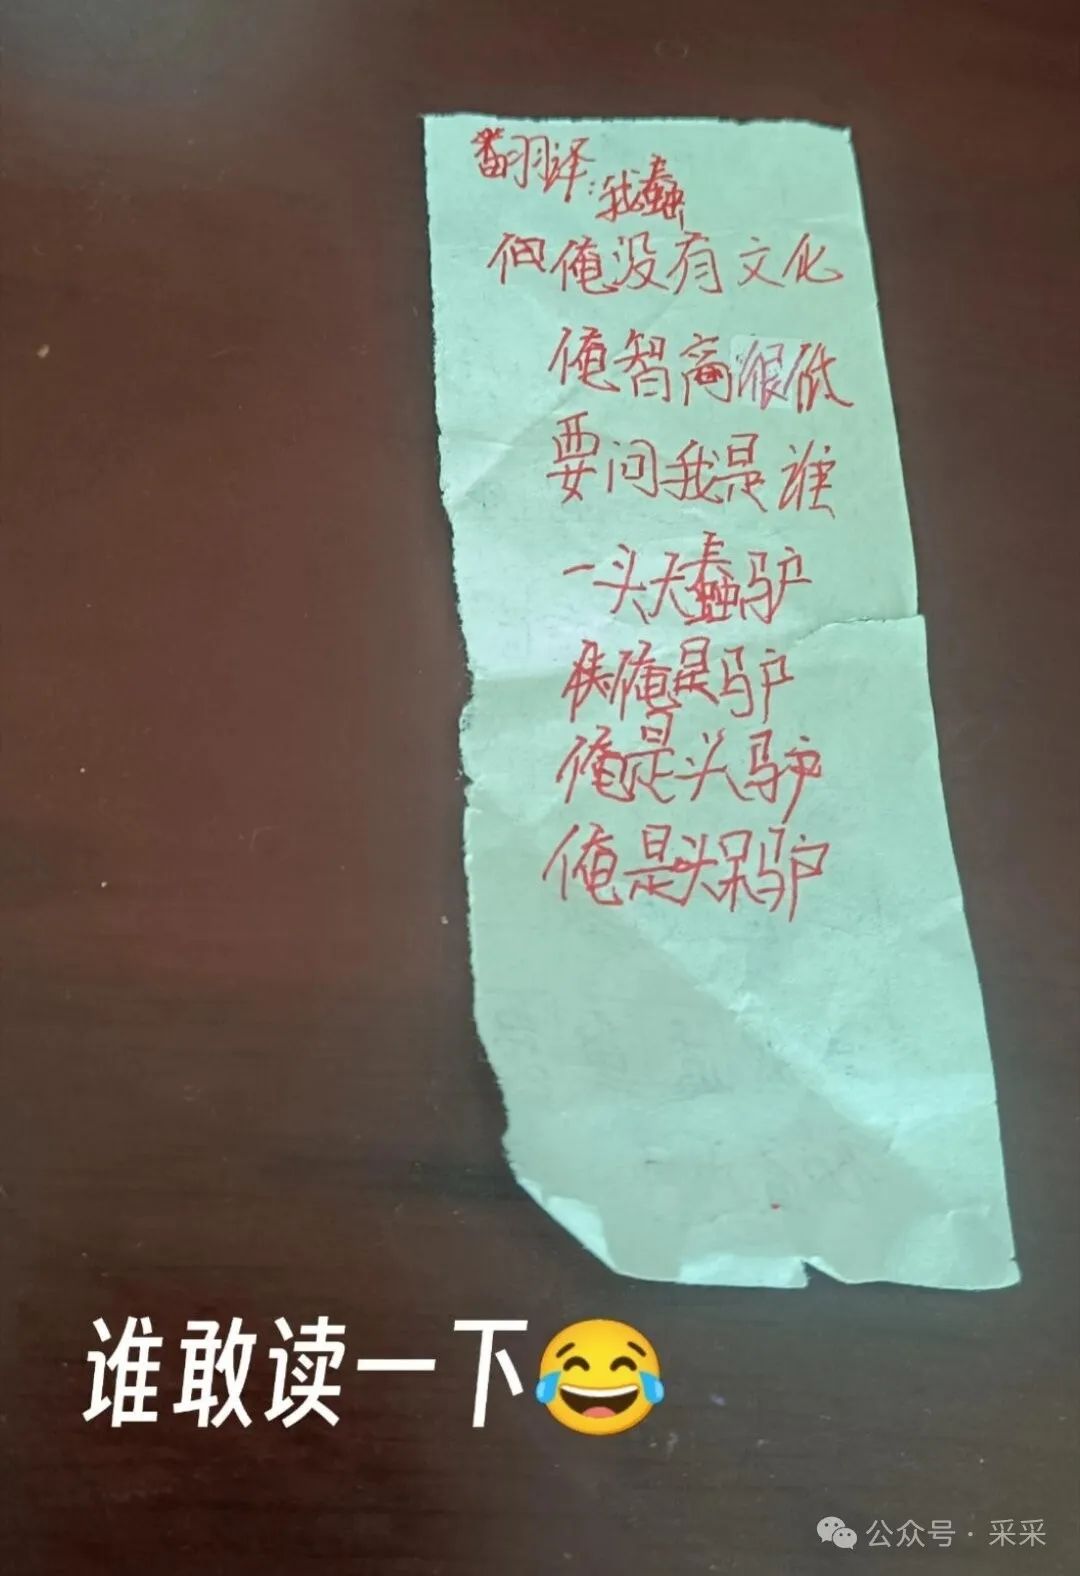 翻译:我蠢
但俺没有文化
俺智商很低
要问我是谁
一头大蠢驴
俺是驴
俺是头驴
俺是头呆驴
谁敢读一下😂
公众号·采采